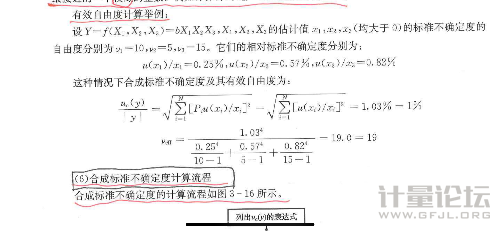 有效自由度计算举例:
设Y=f(X₁,X₂,X₃)=bX₁X₂X₃,X₁,X₂,X₃的估计值x₁,x₂,x₃(均大于0)的标准不确定度的
自由度分别为ν₁=10,ν₂=5,ν₃=15。它们的相对标准不确定度分别为:
u(x₁)/x₁=0.25%,u(x₂)/x₂=0.57%,u(x₃)/x₃=0.82%
这种情况下合成标准不确定度及其有效自由度为:
u_c(y)/|y| = √(∑_{i=1}^{N}[P_i u(x_i)/x_i]²) = √(∑_{i=1}^{N}[u(x_i)/x_i]²) = 1.03% = 1%
ν_eff = 1.03⁴/(0.25⁴/(10-1) + 0.57⁴/(5-1) + 0.82⁴/(15-1)) = 19.0 = 19
(6)合成标准不确定度计算流程
合成标准不确定度的计算流程如图3-16所示。
列出u_c(y)的表达式
计量论坛
WWW.GFJL.ORG